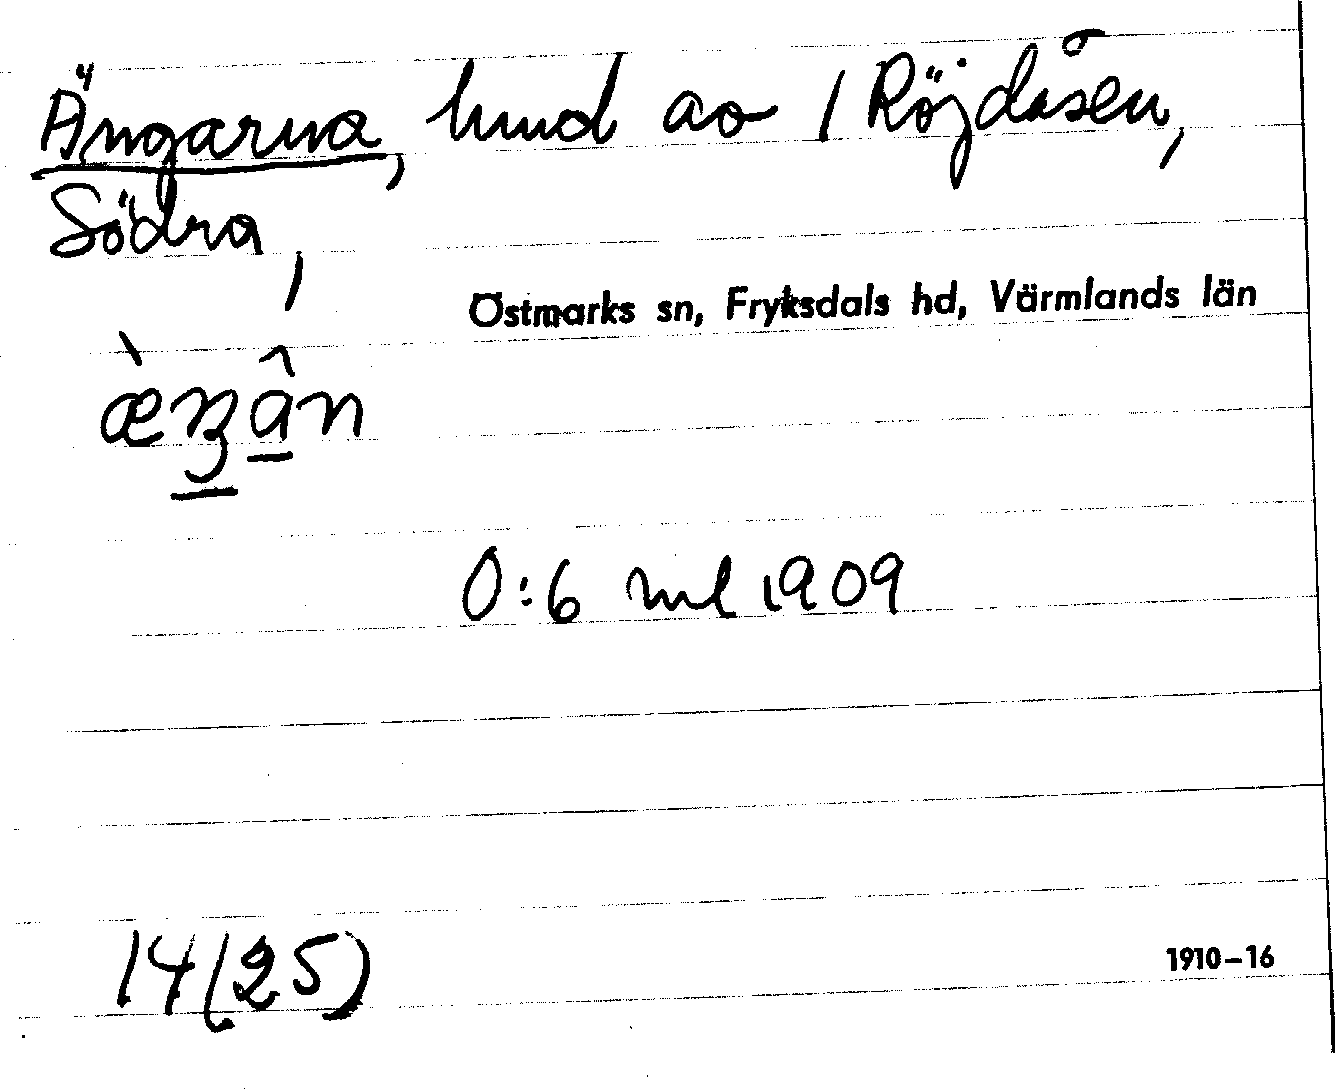 Ängarna, hmd av 1 Röjdåsen,
Södra,
Östmarks sn, Fryksdals hd, Värmlands län
0:6 mil 1909
14(25)
1910–16